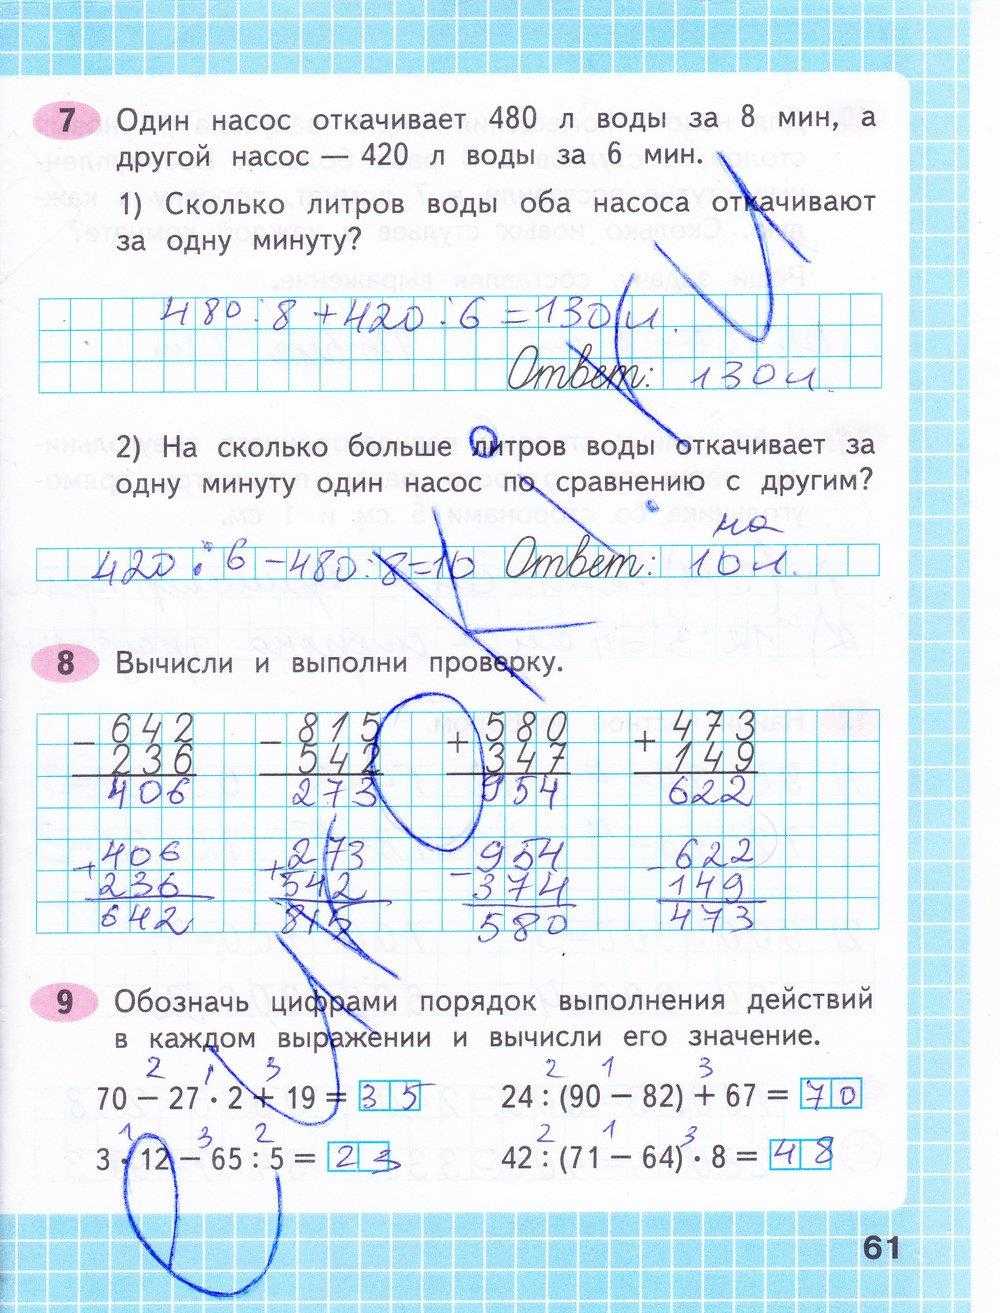 7 Один насос откачивает 480 л воды за 8 мин, а
другой насос — 420 л воды за 6 мин.
1) Сколько литров воды оба насоса откачивают
за одну минуту?
480 : 8 + 420 : 6 = 130 л.
Ответ: 130 л.
2) На сколько больше литров воды откачивает за
одну минуту один насос по сравнению с другим?
на
420 : 6 - 480 : 8 = 10 Ответ: 10 л.
8 Вычисли и выполни проверку.
- 642 - 815 + 580 + 473
236 542 347 149
406 273 954 622
+ 406 + 273 - 954 - 622
236 542 374 149
642 815 580 473
9 Обозначь цифрами порядок выполнения действий
в каждом выражении и вычисли его значение.
2 1 3 2 1 3
70 − 27 · 2 + 19 = 35 24 : (90 − 82) + 67 = 70
1 3 2 2 1 3
3 · 12 − 65 : 5 = 23 42 : (71 − 64) · 8 = 48
61